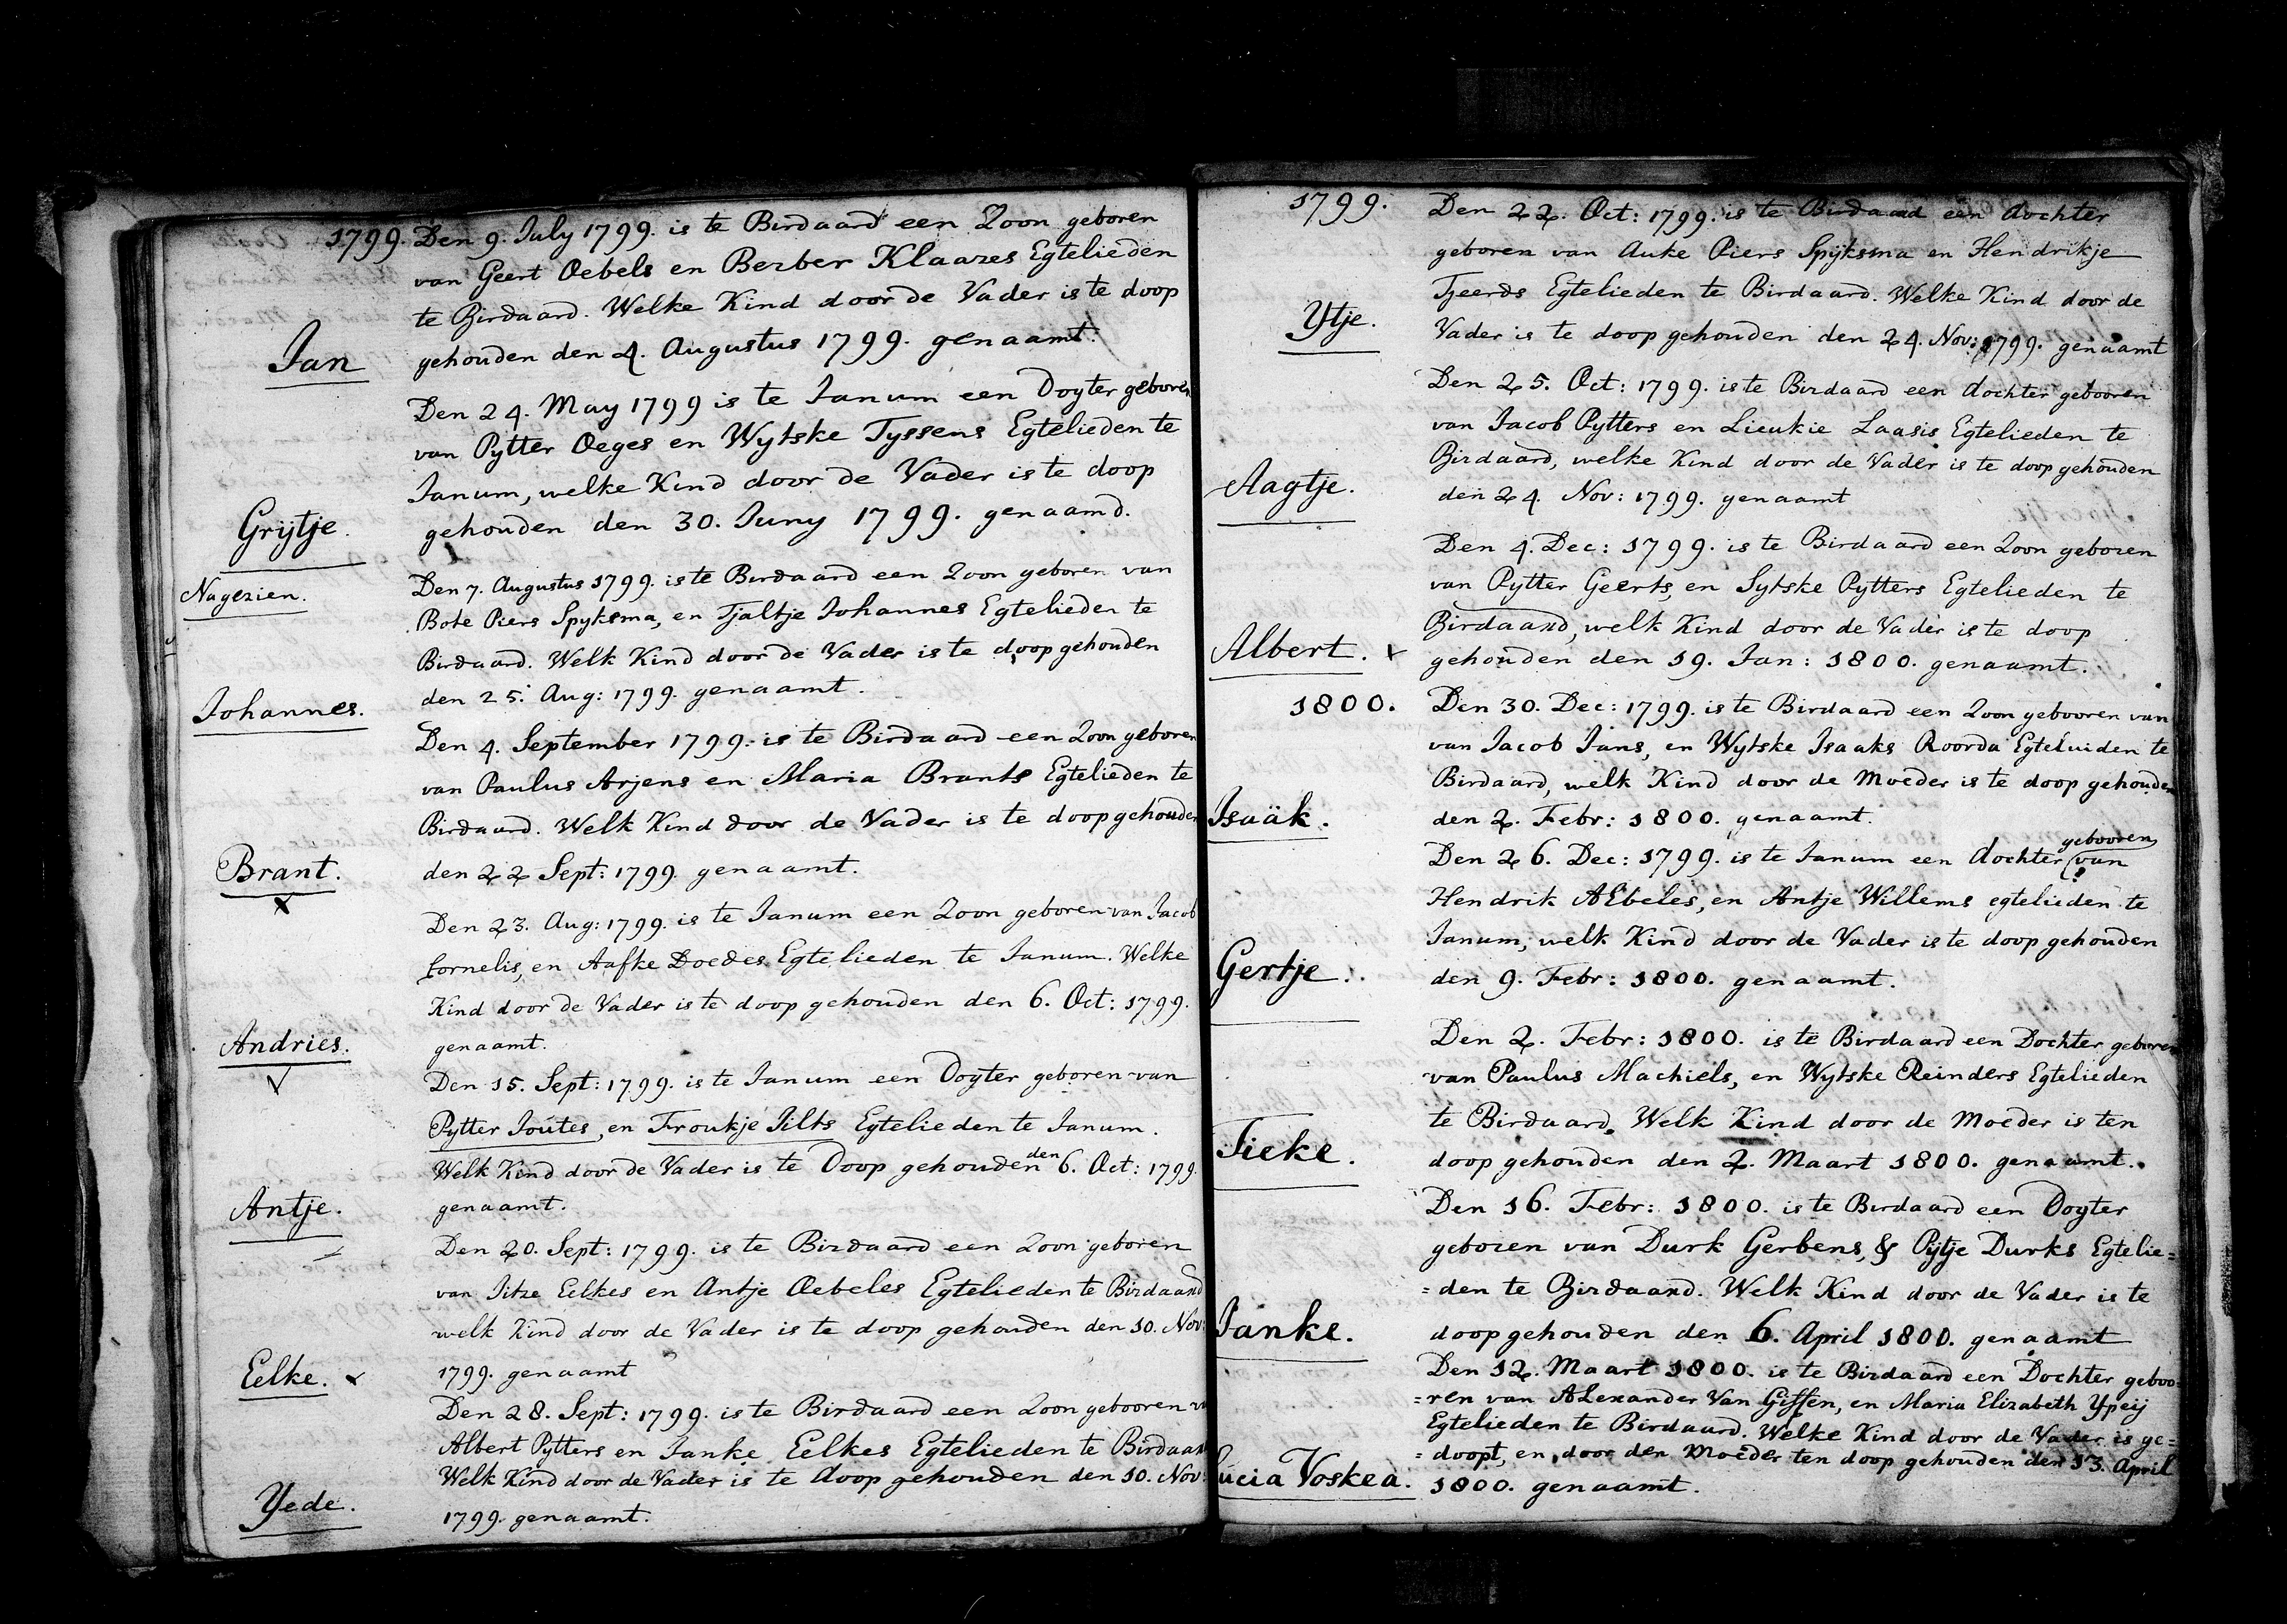 1799. Den 9. July 1799. is te Birdaard een Zoon geboren
van Geert Oebels en Berber Klaazes Egtelieden
te Birdaard. Welke Kind door de Vader is te doop
Jan gehouden den 4. Augustus 1799. genaamt.
Den 24. May 1799 is te Janum een Dogter geboren
van Pytter Oeges en Wytske Tyssens Egtelieden te
Janum, welke Kind door de Vader is te doop
Grijtje. gehouden den 30. Juny 1799. genaamd.
Nagezien. Den 7. Augustus 1799. is te Birdaard een Zoon geboren van
Bote Piers Spyksma, en Tjaltje Johannes Egtelieden te
Birdaard. Welk Kind door de Vader is te doop gehouden
Johannes. den 25. Aug: 1799. genaamt.
Den 4. September 1799. is te Birdaard een Zoon geboren
van Paulus Arjens en Maria Brants Egtelieden te
Birdaard. Welk Kind door de Vader is te doop gehouden
Brant. den 22 Sept: 1799. genaamt.
Den 23. Aug: 1799. is te Janum een Zoon geboren van Jacob
Cornelis, en Aafke Doedes Egtelieden te Janum. Welke
Kind door de Vader is te doop gehouden den 6. Oct: 1799.
Andries. genaamt.
Den 15. Sept: 1799. is te Janum een Dogter geboren van
Pytter Joútes, en Froukje Jilts Egtelieden te Janum.
Welk Kind door de Vader is te Doop gehouden den 6. Oct: 1799.
Antje. genaamt.
Den 20. Sept: 1799. is te Birdaard een Zoon geboren
van Jitze Eelkes en Antje Oebeles Egtelieden te Birdaard
welk Kind door de Vader is te doop gehouden den 10. Nov:
Eelke. 1799. genaamt
Den 28. Sept: 1799. is te Birdaard een Zoon gebooren
Albert Pytters en Janke Eelkes Egtelieden te Birdaard
Welk Kind door de Vader is te doop gehouden den 10. Nov:
Yede. 1799. genaamt.
1799. Den 22. Oct: 1799. is te Birdaard een dochter
geboren van Auke Piers Spijksma en Hendrikje
Tjeerds Egtelieden te Birdaard. Welke Kind door de
Ytje. Vader is te doop gehouden den 24. Nov: 1799. genaamt
Den 25. Oct: 1799. is te Birdaard een dochter gebooren
van Jacob Pytters en Lieukie Laasis Egtelieden te
Birdaard, welke Kind door de Vader is te doop gehouden
Aagtje. den 24. Nov: 1799. genaamt
Den 4. Dec: 1799. is te Birdaard een Zoon geboren
van Pytter Geerts, en Sytske Pytters Egtelieden te
Birdaard, welk Kind door de Vader is te doop
Albert. gehouden den 19. Jan: 1800. genaamt.
1800. Den 30. Dec: 1799. is te Birdaard een Zoon gebooren van
van Jacob Jans, en Wytske Isaaks Roorda Egteluiden te
Birdaard, welk Kind door de Moeder is te doop gehouden
Isaäk. den 2. Febr: 1800. genaamt.
Den 26. Dec: 1799. is te Janum een dochter gebooren van
Hendrik AEbeles, en Antje Willems egtelieden te
Janum, welk Kind door de Vader is te doop gehouden
Gertje. den 9. Febr: 1800. genaamt.
Den 2. Febr: 1800. is te Birdaard een Dochter geboren
van Paulus Machiels, en Wytske Reinders Egtelieden
te Birdaard. Welk Kind door de Moeder is ten
Fieke. doop gehouden den 2. Maart 1800. genaamt.
Den 16. Febr: 1800. is te Birdaard een Dogter
geboren van Durk Gerbens, & Pijtje Durks Egtelie=
=den te Birdaard. Welk Kind door de Vader is te
Janke. doop gehouden den 6. April 1800. genaamt
Den 12. Maart 1800. is te Birdaard een Dochter geboo=
=ren van ALexander Van Giffen, en Maria Elizabeth Ypeij
Egtelieden te Birdaard. Welke Kind door de Vader is ge=
=doopt, en door den Moeder ten doop gehouden den 13. April
Lucia Voskea. 1800. genaamt.